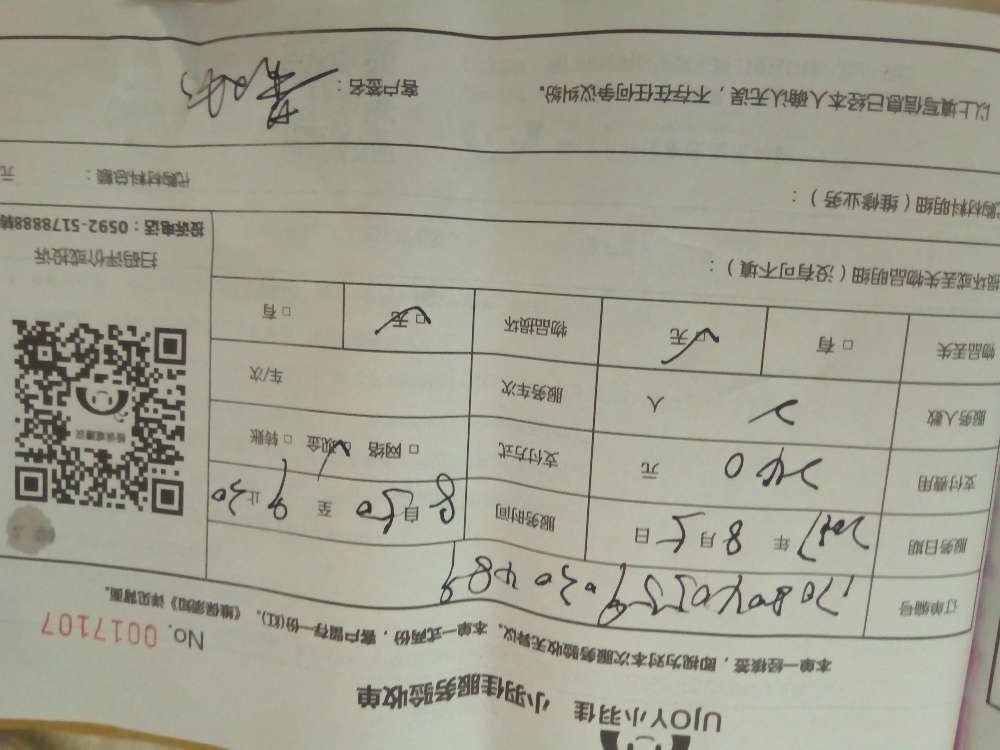 UJOY小羽佳 小羽佳服务验收单
本单一经核签，即视为对本次服务验收无异议。本单一式两份，客户留存一份(红)。《维保须知》详见背面。
No. 0017107
订单编号
服务日期 2017 年 8 月 5 日 服务时间 自 8 50 至 9 50 止
支付费用 240 元 支付方式 □ 网络 □ 现金 □ 转账
服务人数 2 人 服务车次 车/次
物品丢失 □ 有 □ 无 物品损坏 □ 无 □ 有
给我提建议
扫码评价或投诉
投诉电话：0592-5178888转
损坏或丢失物品明细（没有可不填）：
代购材料明细（维修业务）： 代购材料总额： 元
以上填写信息已经本人确认无误，不存在任何争议纠纷。 客户签名：